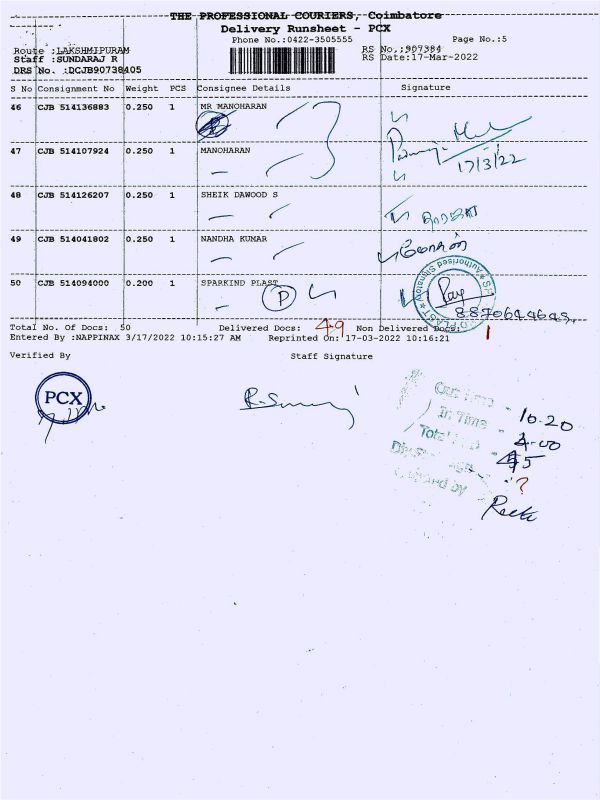 THE PROFESSIONAL COURIERS, Coimbatore
Delivery Runsheet - PCX
Phone No.:0422-3505555 Page No.:5
Route :LAKSHMIPURAM RS No.:907384
Staff :SUNDARAJ R RS Date:17-Mar-2022
DRS No. :DCJB90738405
S No Consignment No Weight PCS Consignee Details Signature
46 CJB 514136883 0.250 1 MR MANOHARAN
47 CJB 514107924 0.250 1 MANOHARAN
17/3/22
48 CJB 514126207 0.250 1 SHEIK DAWOOD S
49 CJB 514041802 0.250 1 NANDHA KUMAR
50 CJB 514094000 0.200 1 SPARKIND PLAST
P
Authorised Signatory
Total No. Of Docs: 50 Delivered Docs: 49 Non Delivered Docs: 1
Entered By :NAPPINAX 3/17/2022 10:15:27 AM Reprinted On: 17-03-2022 10:16:21
Verified By Staff Signature
PCX
Out Time - 10.20
In Time - 4.00